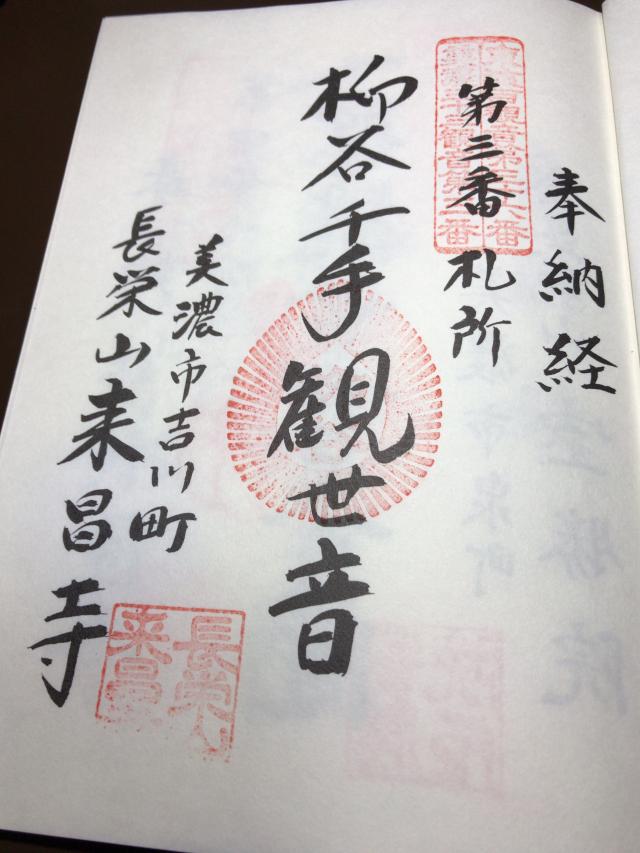 奉納経
第三番札所
柳谷千手観世音
美濃市吉川町
長栄山来昌寺